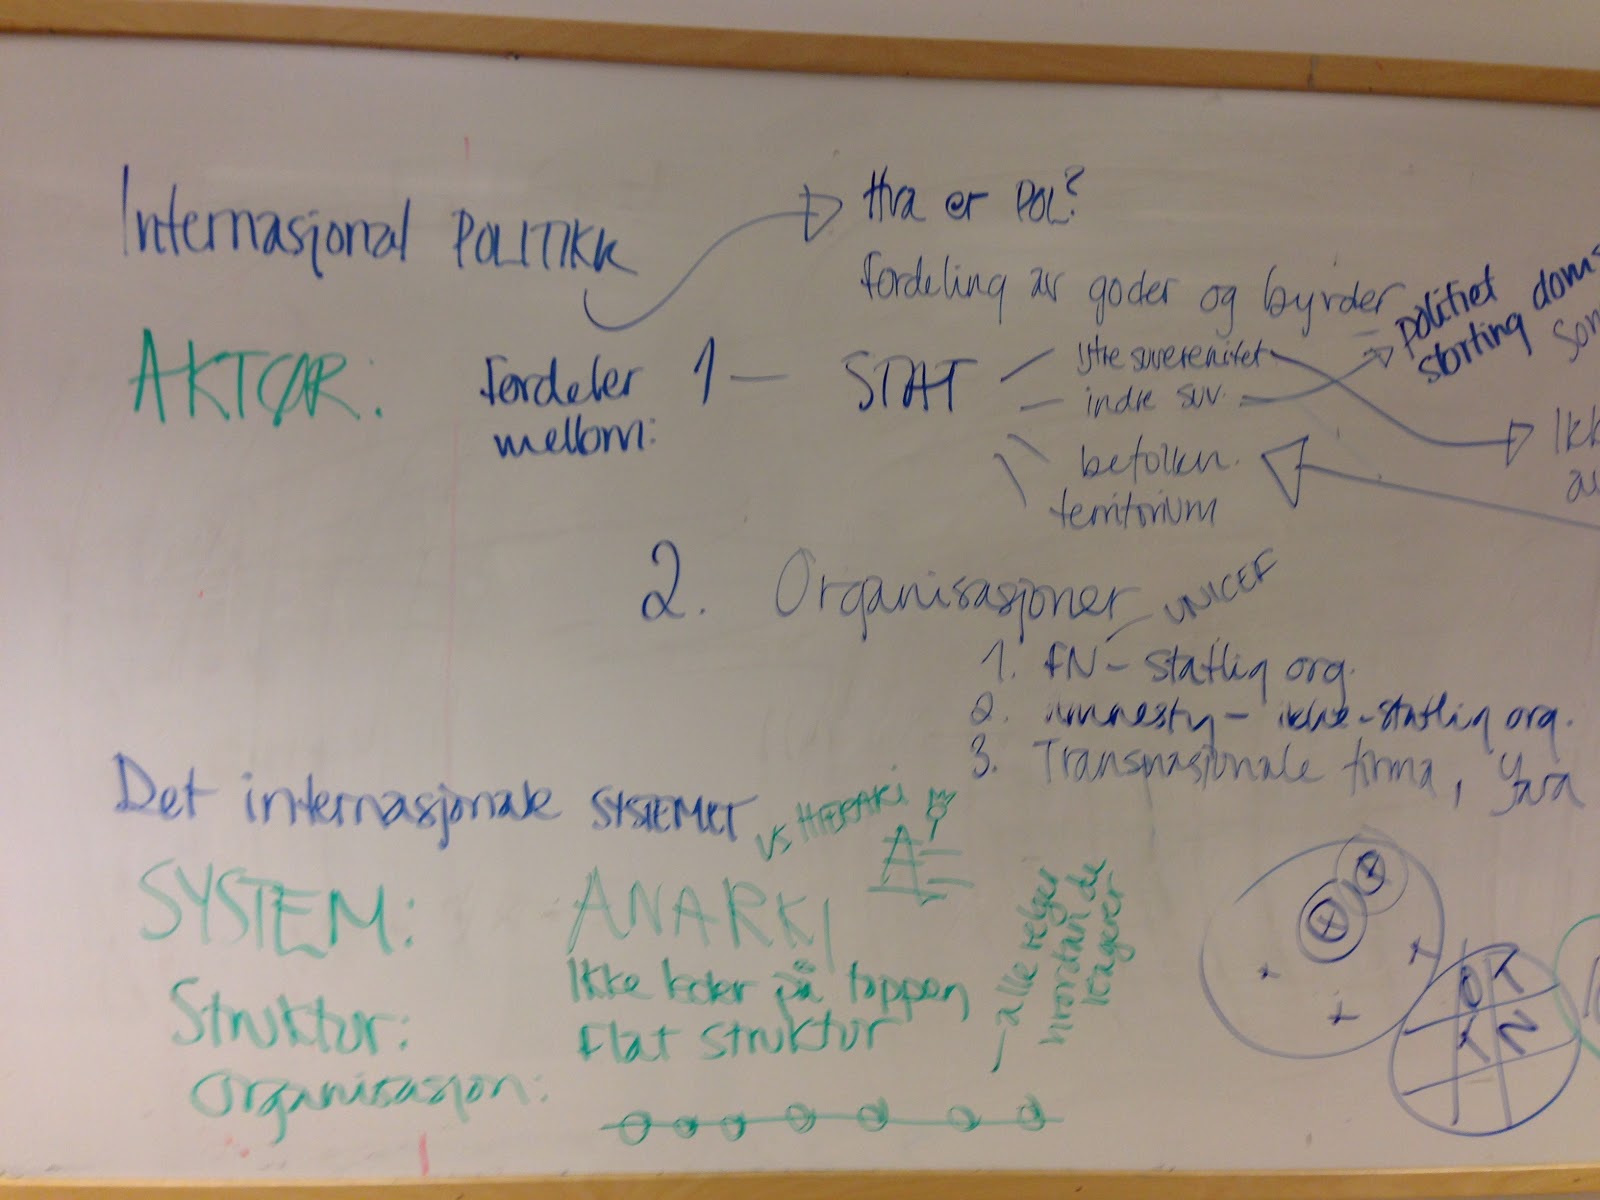 Internasjonal POLITIKK
Hva er POL?
fordeling av goder og byrder
AKTØR:
fordeler
mellom:
1 — STAT
ytre suverenitet
indre suv.
befolkn.
territorium
politiet
storting doms
som
Ikk
2. Organisasjoner
UNICEF
1. FN – statlig org.
2. amnesty – ikke-statlig org.
3. Transnasjonale firma, Yara
Det internasjonale SYSTEMET
vs HIERARKI
SYSTEM: ANARKI
Struktur:
Organisasjon:
Ikke leder på toppen
Flat struktur
– alle velger
hvordan de
reagerer